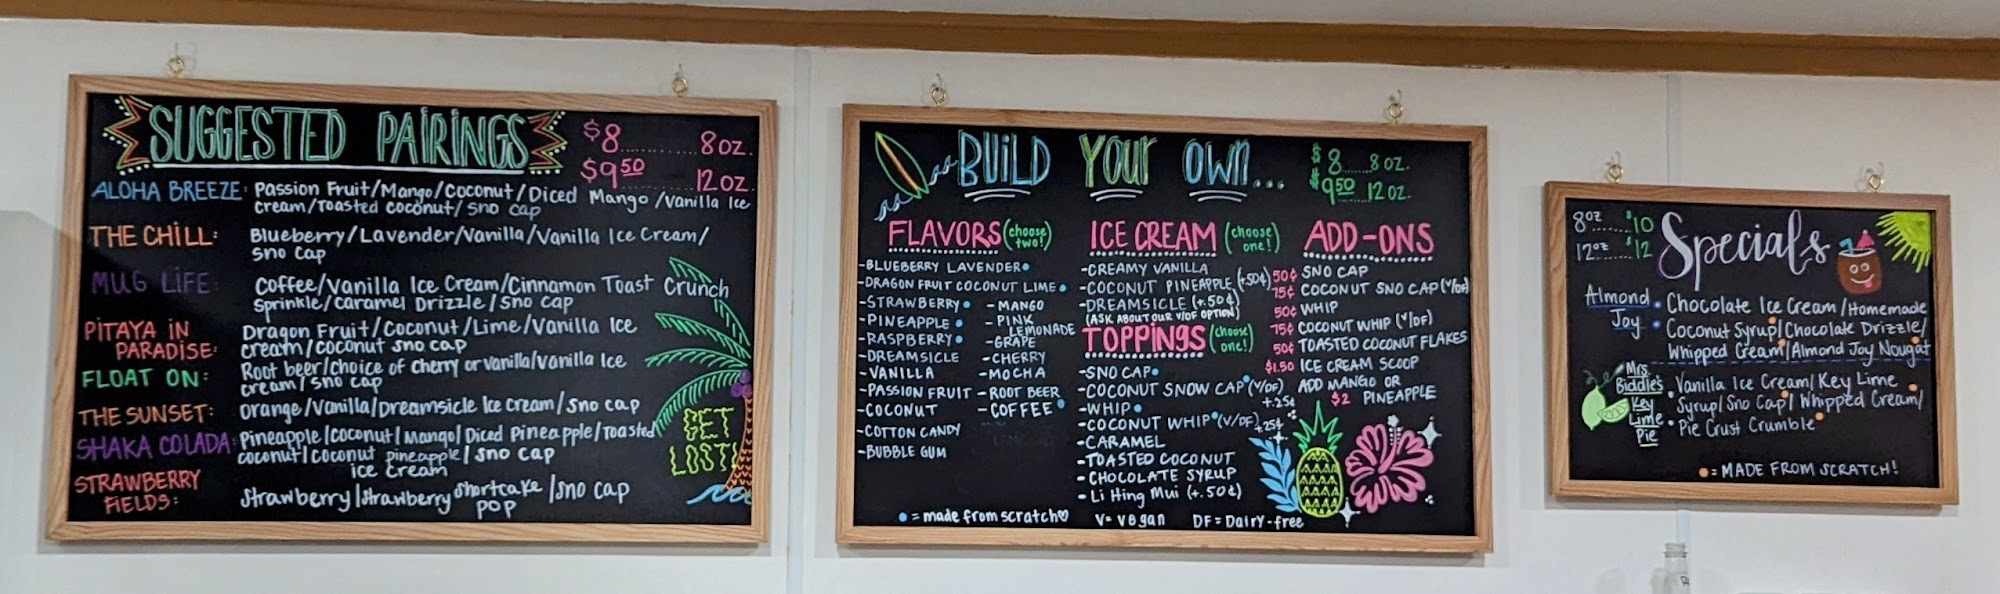 SUGGESTED PAIRINGS
$8............8 oz.
$9.50.........12 oz.
ALOHA BREEZE: Passion Fruit/Mango/Coconut/Diced Mango/Vanilla Ice
cream/Toasted coconut/sno cap
THE CHILL: Blueberry/Lavender/Vanilla/Vanilla Ice Cream/
sno cap
MUG LIFE: Coffee/Vanilla Ice Cream/Cinnamon Toast Crunch
Sprinkle/Caramel Drizzle/Sno cap
PITAYA IN Dragon Fruit/Coconut/Lime/Vanilla Ice
PARADISE: cream/coconut sno cap
FLOAT ON: Root beer/choice of cherry or vanilla/vanilla Ice
cream/sno cap
THE SUNSET: orange/Vanilla/Dreamsicle Ice cream/sno cap
SHAKA COLADA: Pineapple/coconut/Mango/Diced Pineapple/Toasted
coconut/coconut pineapple/sno cap
ice cream
STRAWBERRY
FIELDS: Strawberry/strawberry shortcake/sno cap
pop
GET
LOST!
BUILD YOUR OWN...
$8....8 oz.
$9.50 12 oz.
FLAVORS (choose two!)
-BLUEBERRY LAVENDER
-DRAGON FRUIT COCONUT LIME
-STRAWBERRY
-PINEAPPLE
-RASPBERRY
-DREAMSICLE
-VANILLA
-PASSION FRUIT
-COCONUT
-COTTON CANDY
-BUBBLE GUM
-MANGO
-PINK
LEMONADE
-GRAPE
-CHERRY
-MOCHA
-ROOT BEER
-COFFEE
ICE CREAM (choose one!)
-CREAMY VANILLA
-COCONUT PINEAPPLE (+50¢)
-DREAMSICLE (+.50¢)
(ASK ABOUT OUR V/DF OPTION)
TOPPINGS (choose one!)
-SNO CAP
-COCONUT SNOW CAP (V/DF)
+.25¢
-WHIP
-COCONUT WHIP (V/DF) +25¢
-CARAMEL
-TOASTED COCONUT
-CHOCOLATE SYRUP
-Li Hing Mui (+.50¢)
ADD-ONS
50¢ SNO CAP
75¢ COCONUT SNO CAP (V/DF)
50¢ WHIP
75¢ COCONUT WHIP (V/DF)
50¢ TOASTED COCONUT FLAKES
$1.50 ICE CREAM SCOOP
ADD MANGO OR
$2 PINEAPPLE
= made from scratch V= vegan DF= Dairy-free
Specials
8oz......$10
12oz......$12
Almond
Joy
Chocolate Ice Cream/Homemade
Coconut Syrup/Chocolate Drizzle/
Whipped Cream/Almond Joy Nougat
Mrs.
Biddle's
Key
Lime
Pie
Vanilla Ice Cream/Key Lime
Syrup/Sno Cap/Whipped Cream/
Pie Crust Crumble
= MADE FROM SCRATCH!